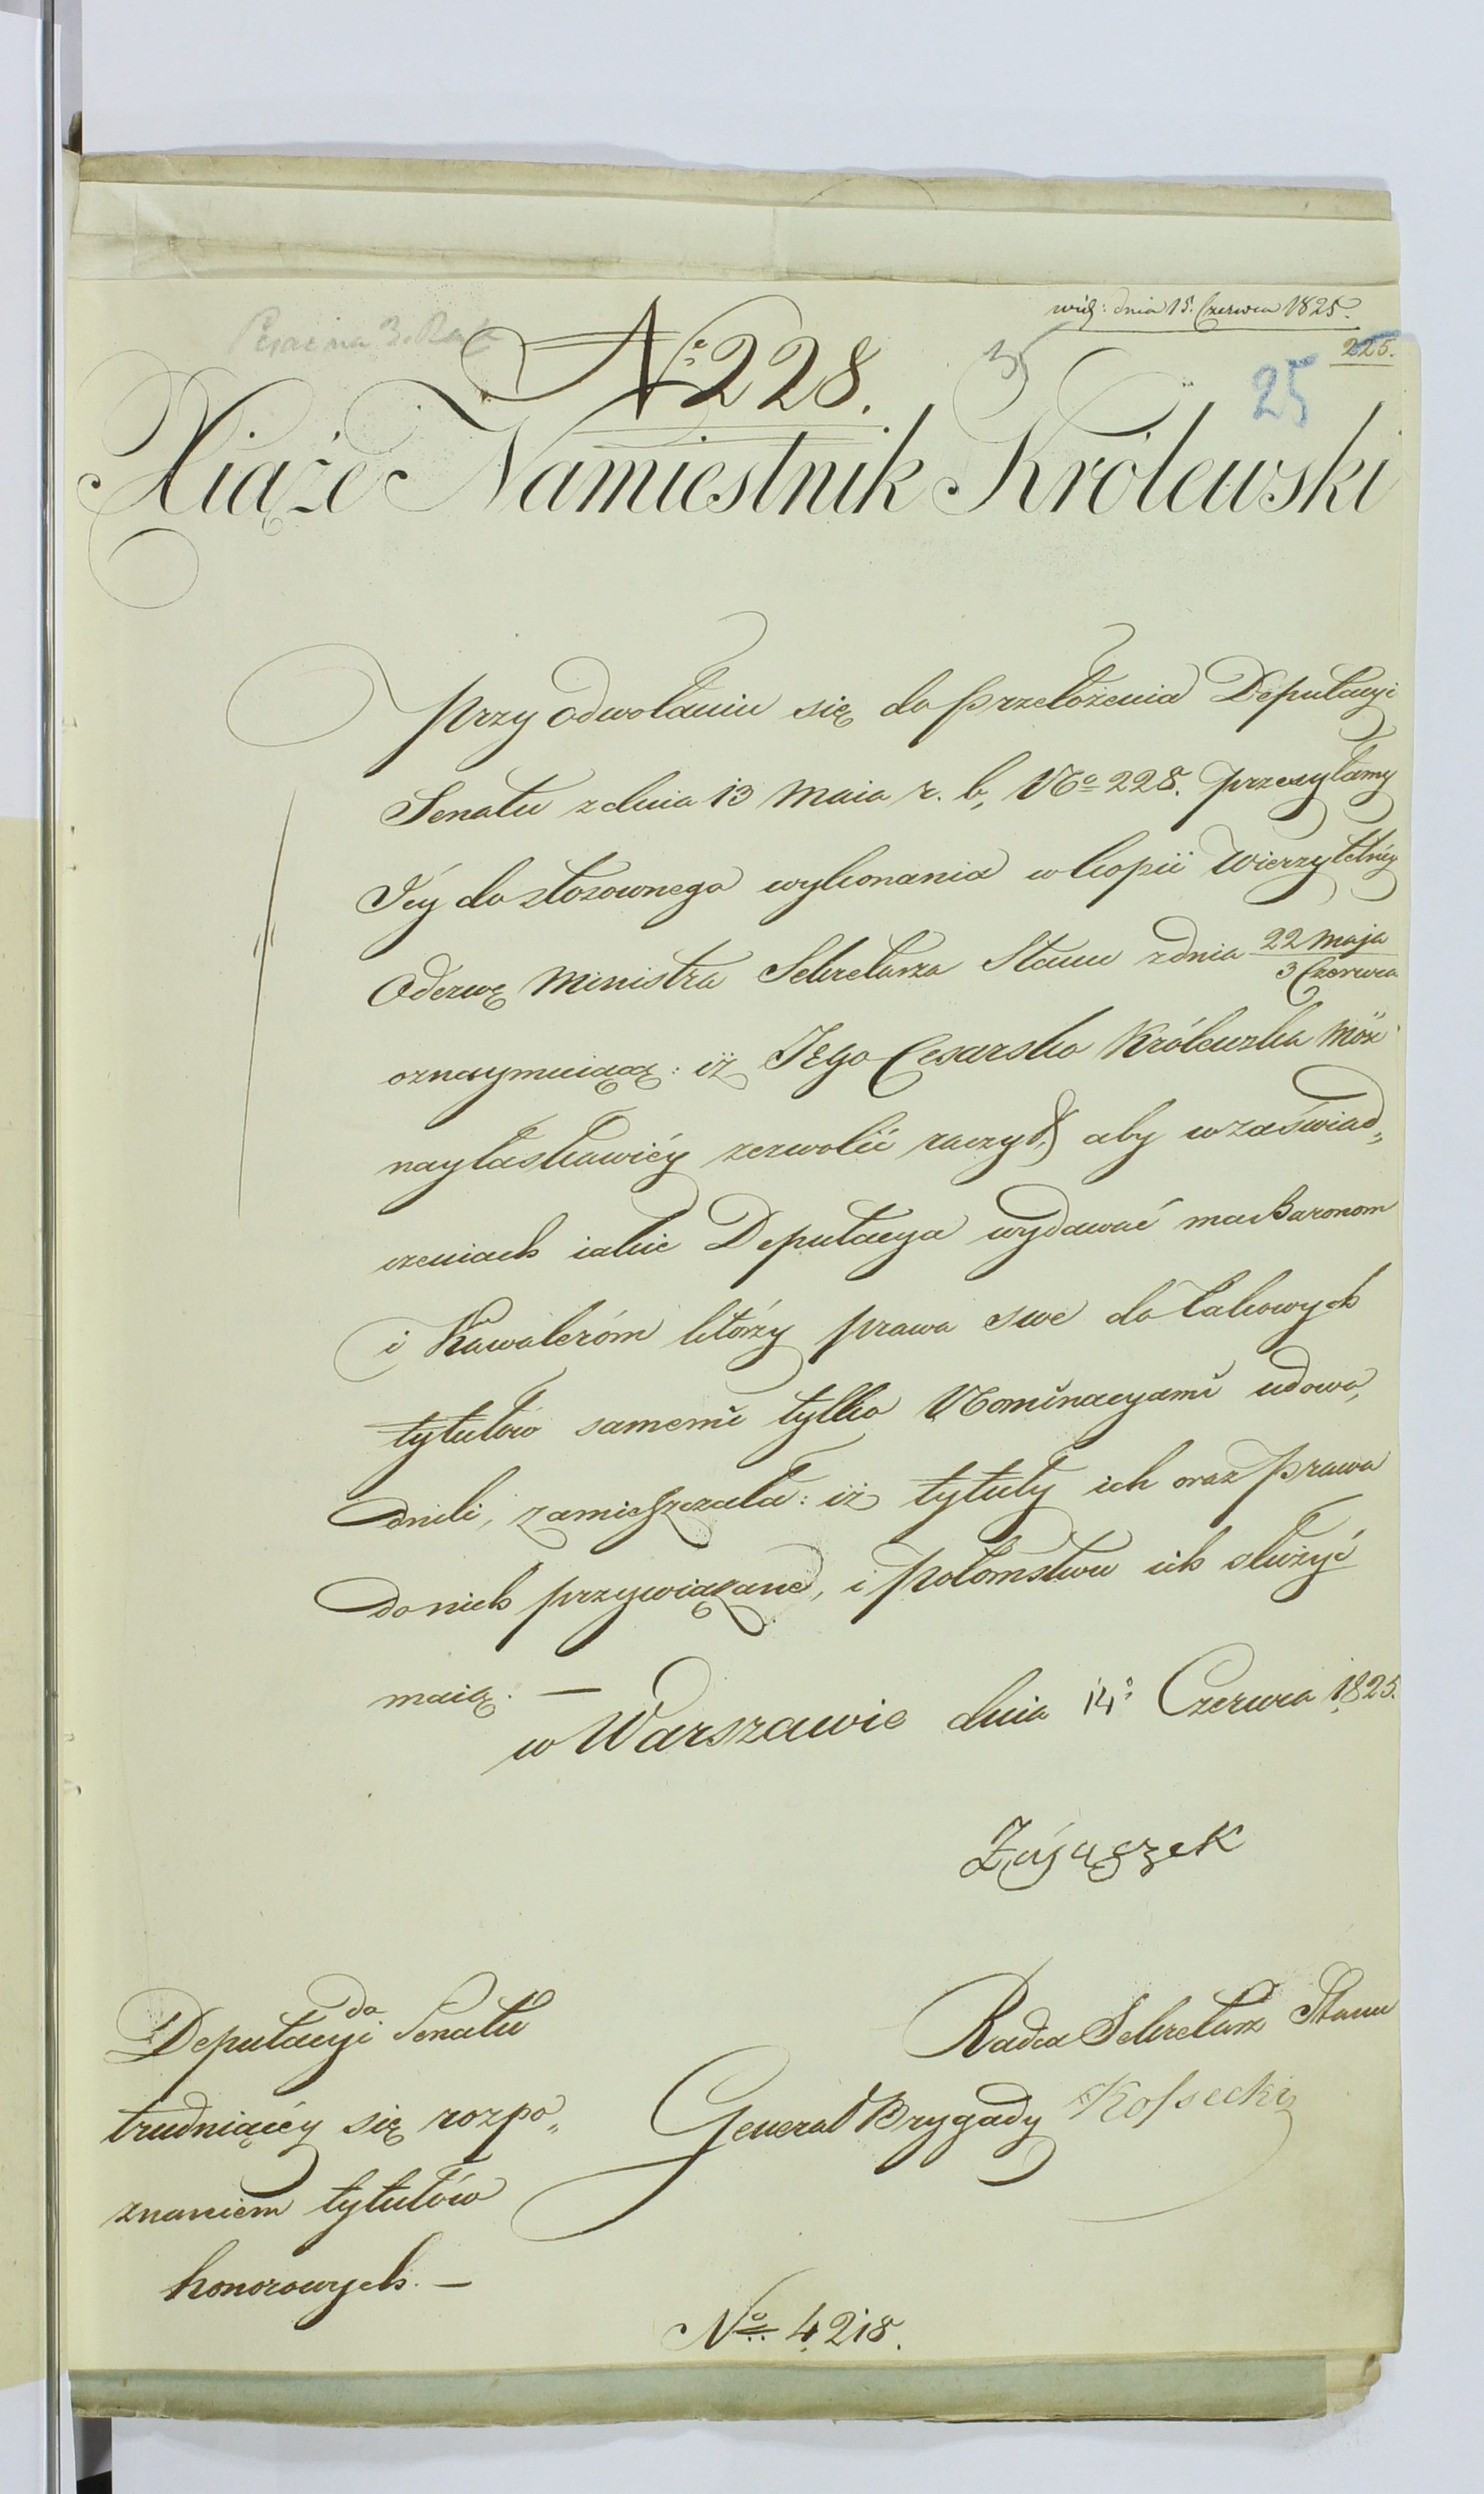 wńg: dnia 15. Czerwca 1825.
225.
No 228.
35
25
Xiąże Namiestnik Królewski
Przy odwołaniu się do przełożenia Deputacyi
Senatu z dnia 13 Maia r. b, No 228. przesyłamy
Jéy do stosownego wykonania w kopii wierzytelnéy
Odezwę Ministra Sekretarza Stanu z dnia 22 Maja / 3 Czerwca
oznaymuiącą: iż JEgo Cesarsko Królewska Mość
nayłaskawiéy zezwolić raczył, aby w zaświad„
czeniach iakie Deputacya wydawać ma Baronom
i Kawaleróm którzy prawa swe do takowych
tytułów samemi tylko Nominacyami udowo„
dnili, zamieszczała: iż tytuły ich oraz prawa
do nich przywiązane, i potomstwu ich służyć
maią. —
w Warszawie dnia 14o Czerwca 1825.
Zajączek
Radca Sekretarz Stanu
Generał Brygady Kossecki
do
Deputacyi Senatu
trudniącéy się rozpo„
znaniem tytułów
honorowych. —
No 4218.